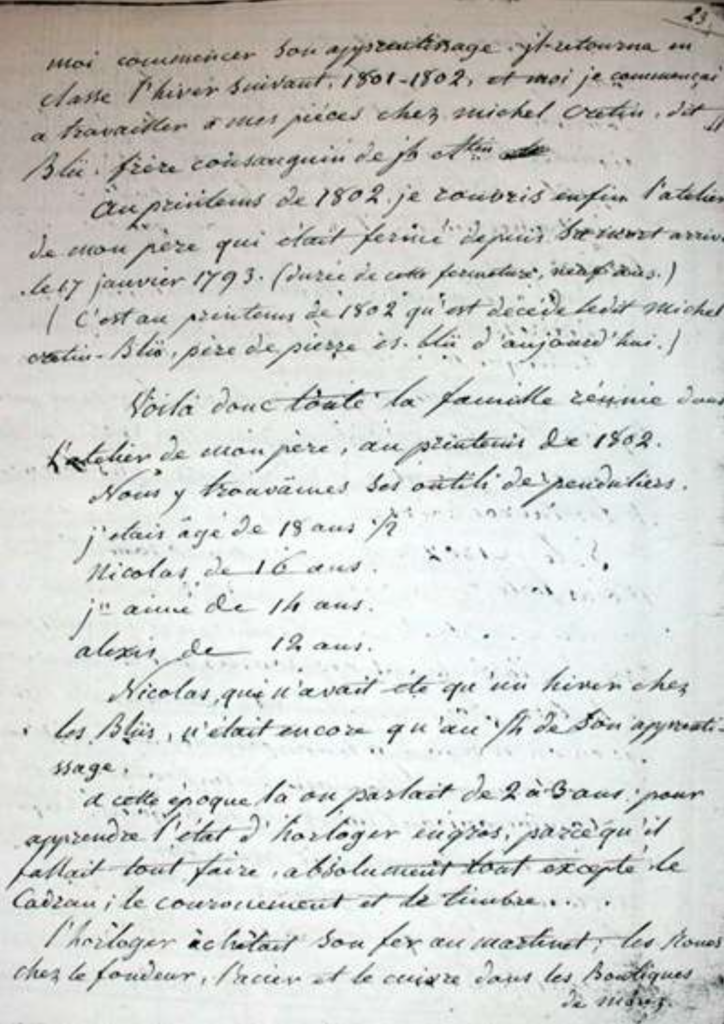 23
moi commencer son apprentissage. jh retourna en
classe l'hiver suivant, 1801-1802, et moi je commençai
a travailler à mes pièces chez michel cretin, dit
Blü. frère consanguin de jh
au printems de 1802. je rouvris enfin l'atelier
de mon père qui était fermé depuis sa mort arriv
le 17 janvier 1793. (durée de cette fermeture, neuf ans.)
( C'est au printems de 1802 qu'est décédé ledit michel
cretin-Blü, père de pierre es. blü d'aujourd'hui.)
Voilà donc toute la famille réunie dans
l'atelier de mon père, au printems de 1802.
Nous y trouvâmes ses outils de penduliers.
j'etais âgé de 18 ans 1/2
Nicolas de 16 ans.
jn aimé de 14 ans.
alexis, de 12 ans.
Nicolas, qui n'avait été qu'un hiver chez
les Blüs, n'était encore qu'au 1/4 de son apprenti-
ssage.
à cette époque là on parlait de 2 à 3 ans. pour
apprendre l'état d'horloger en gros, parce qu'il
fallait tout faire, absolument tout excepté le
Cadran; le couronnement et le timbre...
l'horloger achêtait son fer au martinet; les Roues
chez le fondeur, l'acier et le cuivre dans les Boutiques
de morez.